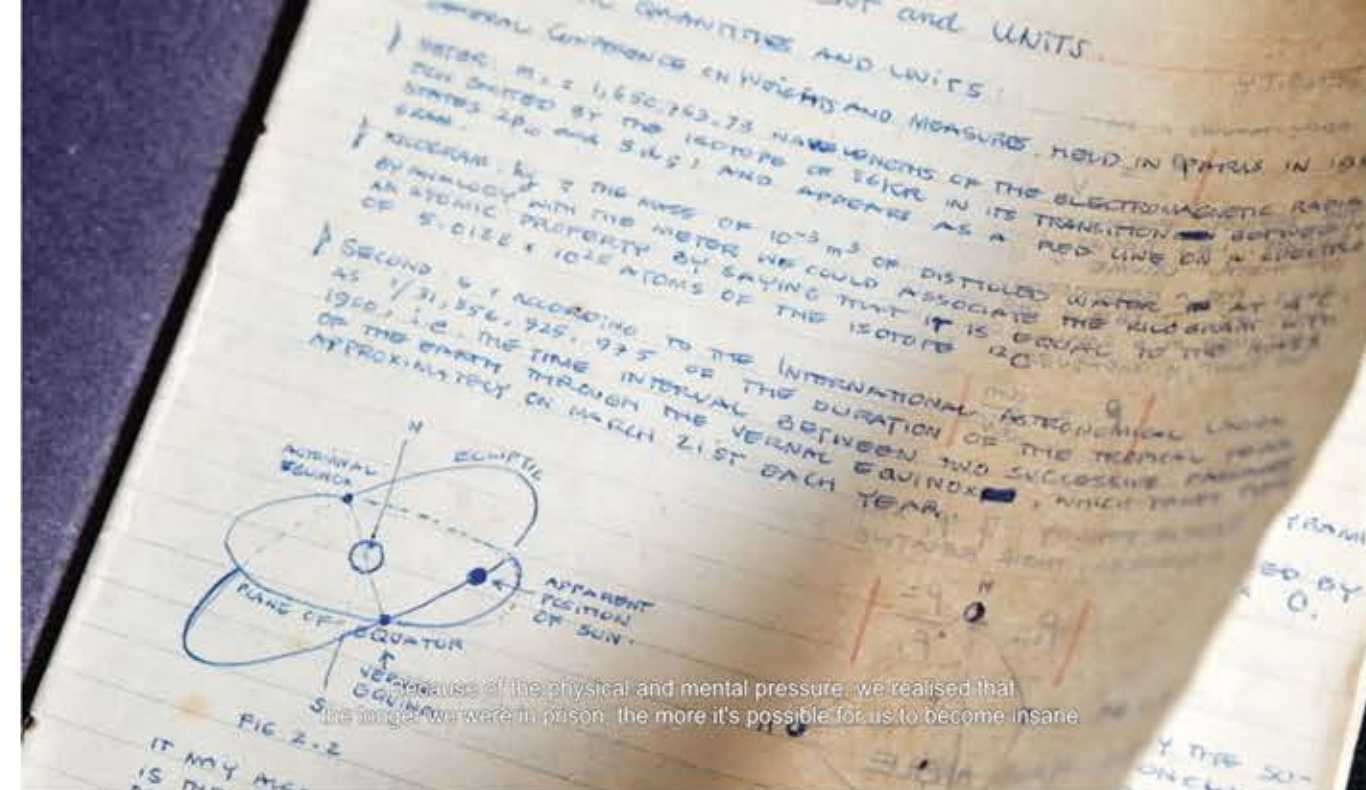 ENT and UNITS.
QUANTITIES AND UNITS
GENERAL CONFERENCE ON WEIGHTS AND MEASURES HELD IN PARIS IN
METER m, = 1,650,763.73 WAVELENGTHS OF THE ELECTROMAGNETIC RADIA
EMITTED BY THE ISOTOPE OF 86KR IN ITS TRANSITION BETWEEN
STATES AND AND APPEARS AS A RED LINE ON A
KILOGRAM kg = THE MASS OF 10⁻³ m³ OF DISTILLED WATER AT 4°C.
BY ANALOGY WITH THE METER WE COULD ASSOCIATE THE KILOGRAM WITH
AN ATOMIC PROPERTY BY SAYING THAT IT IS EQUAL TO THE MASS
OF ATOMS OF THE ISOTOPE 12C
SECOND, ACCORDING TO THE INTERNATIONAL ASTRONOMICAL UNION
AS 1/31,556,925.975 OF THE DURATION OF THE TROPICAL YEAR
1900, i.e. THE TIME INTERVAL BETWEEN TWO SUCCESSIVE PASSAGES
OF THE EARTH THROUGH THE VERNAL EQUINOX, WHICH
APPROXIMATELY ON MARCH 21ST EACH YEAR.
N
AUTUMNAL
EQUINOX
ECLIPTIC
APPARENT
POSITION
OF SUN.
PLANE OF EQUATOR
VERNAL
EQUINOX
S
FIG 2.2
IT MAY
IS
ED BY
O.
THE SO-
Because of the physical and mental pressure, we realised that
the longer we were in prison, the more it's possible for us to become insane